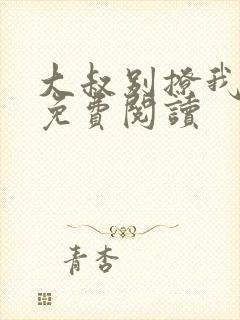 大叔别撩我
免費閱讀
青杏